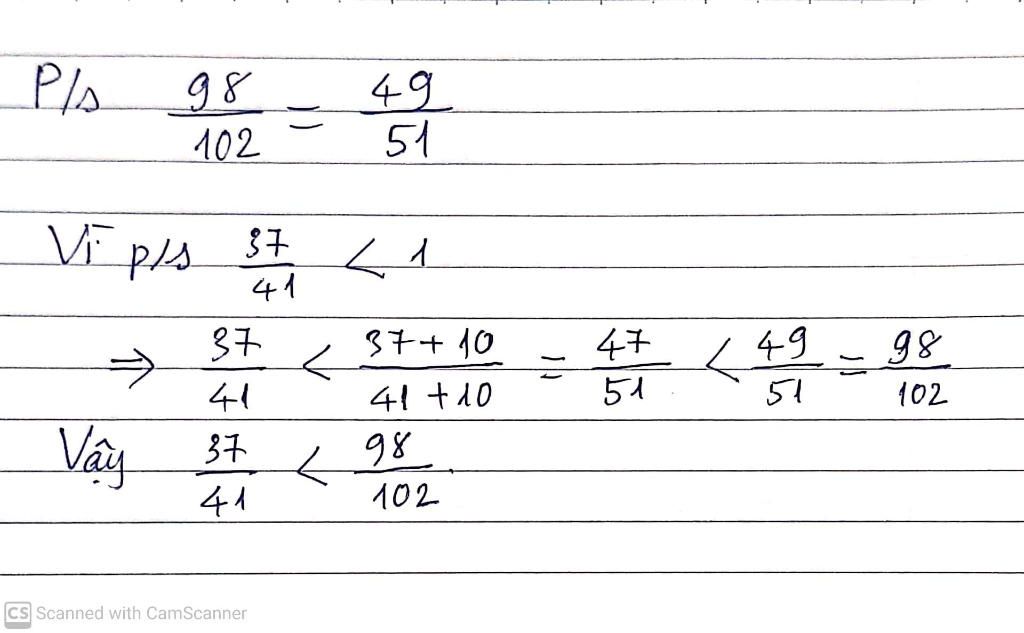 P/s 98/102 = 49/51
Vì p/s 37/41 < 1
⇒ 37/41 < 37+10/41+10 = 47/51 < 49/51 = 98/102
Vậy 37/41 < 98/102.
CS Scanned with CamScanner